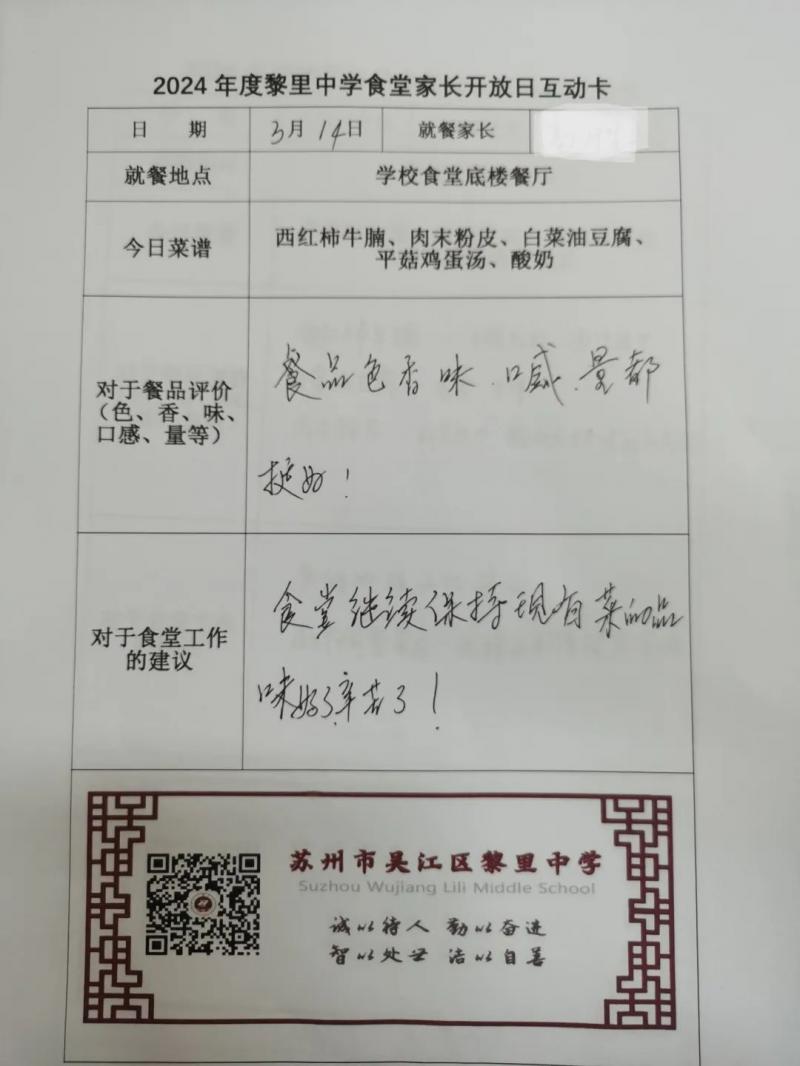 2024年度黎里中学食堂家长开放日互动卡
日 期 3月14日 就餐家长
就餐地点 学校食堂底楼餐厅
今日菜谱 西红柿牛腩、肉末粉皮、白菜油豆腐、
平菇鸡蛋汤、酸奶
对于餐品评价
（色、香、味、
口感、量等）
餐品色香味、口感、量都
挺好！
对于食堂工作
的建议
食堂继续保持现有菜的品
味好了，辛苦了！
苏州市吴江区黎里中学
Suzhou Wujiang Lili Middle School
诚以待人 勤以奋进
智以处世 洁以自善